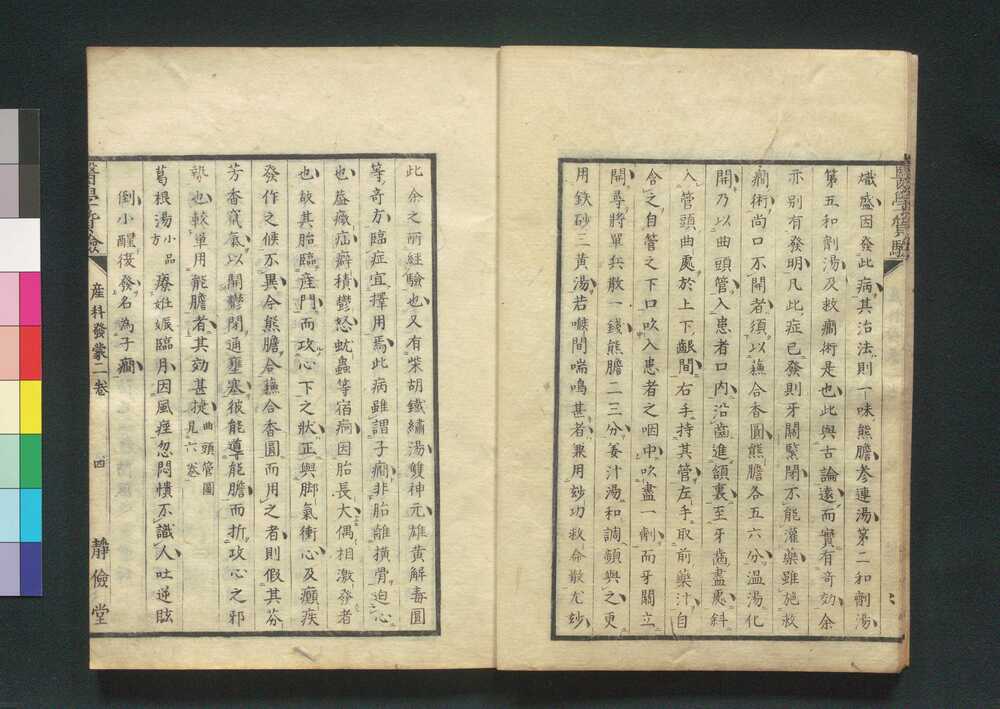 熾盛因發此病其治法則一味熊膽參連湯第二和劑湯
第五和劑湯及救癇術是也此與古論遠而實有奇効余
亦別有發明凡此症已發則牙關緊閉不能灌藥雖施救
癇術尚口不開者須以蘓合香圓熊膽各五六分温湯化
開乃以曲頭管入患者口内沿齒進頷裏至牙齒盡處斜
入管頭曲處於上下齦間右手持其管左手取前藥汁自
含之自管之下口吹入患者之咽中吹盡一劑而牙關立
開尋將單兵散一錢熊膽二三分姜汁湯和調頻與之更
用鉄砂三黄湯若喉間喘鳴甚者兼用玅功救命散尤玅
此余之所經驗也又有柴胡鐵繡湯雙神元雄黄解毒圓
等奇方臨症宜擇用焉此病雖謂子癇非胎離横骨迫心
也盖癥疝癖積鬱怒蚘蟲等宿痾因胎長大偶相激發者
也故其胎臨産門而攻心下之狀正與脚氣衝心及癲疾
發作之候不異今熊膽合蘓合香圓而用之者則假其芬
芳香竄氣以開鬱閉通壅塞彼能導能膽而折攻心之邪
熱也較單用能膽者其効甚捷曲頭管圖見六卷
葛根湯小品方療姙娠臨月因風痙忽悶憒不識人吐逆眩
倒小醒復發名為子癇
産科發蒙二卷
四
靜儉堂